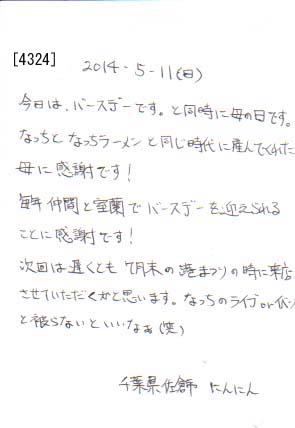 [4324]
2014-5-11(日)
今日は、バースデーです。と同時に母の日です。
なっちと なっちラーメンと同じ時代に産んでくれた
母に感謝です!
毎年 仲間と室蘭でバースデーを迎えられる
ことに感謝です!
次回は遅くとも 7月末の港まつりの時に来店
させていただくかと思います。なっちのライブorイベント
と被らないといいなぁ(笑)
千葉県佐倉市 にんにん